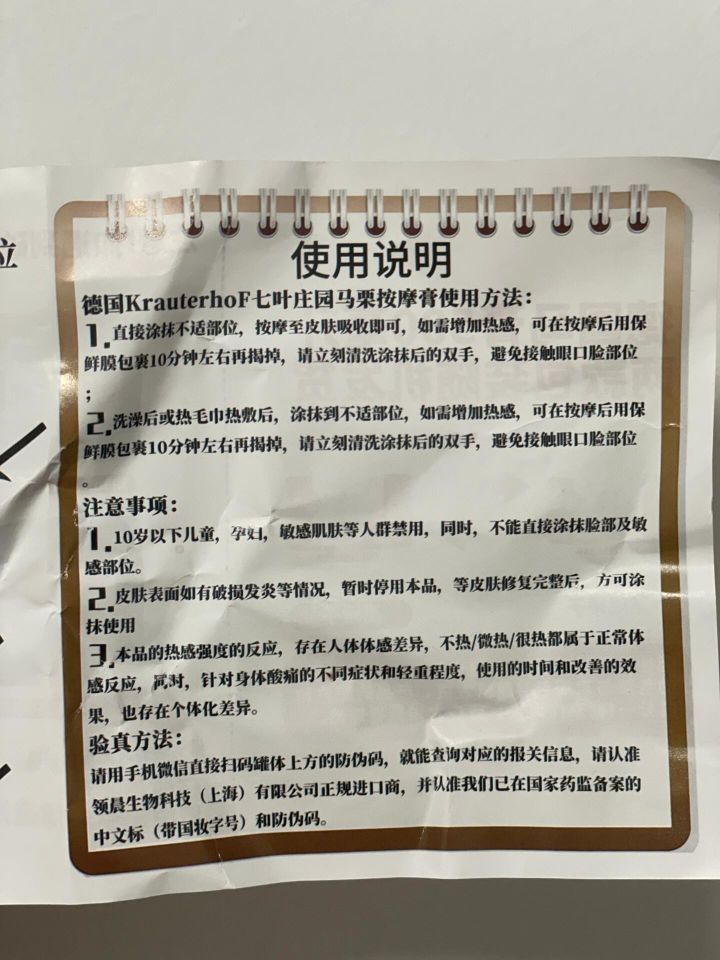 位
使用说明
德国KrauterhoF七叶庄园马栗按摩膏使用方法：
1.直接涂抹不适部位，按摩至皮肤吸收即可，如需增加热感，可在按摩后用保
鲜膜包裹10分钟左右再揭掉，请立刻清洗涂抹后的双手，避免接触眼口脸部位
；
2.洗澡后或热毛巾热敷后，涂抹到不适部位，如需增加热感，可在按摩后用保
鲜膜包裹10分钟左右再揭掉，请立刻清洗涂抹后的双手，避免接触眼口脸部位
。
注意事项：
1.10岁以下儿童，孕妇，敏感肌肤等人群禁用，同时，不能直接涂抹脸部及敏
感部位。
2.皮肤表面如有破损发炎等情况，暂时停用本品，等皮肤修复完整后，方可涂
抹使用
3.本品的热感强度的反应，存在人体体感差异，不热/微热/很热都属于正常体
感反应，同时，针对身体酸痛的不同症状和轻重程度，使用的时间和改善的效
果，也存在个体化差异。
验真方法：
请用手机微信直接扫码罐体上方的防伪码，就能查询对应的报关信息，请认准
领晨生物科技（上海）有限公司正规进口商，并认准我们已在国家药监备案的
中文标（带国妆字号）和防伪码。